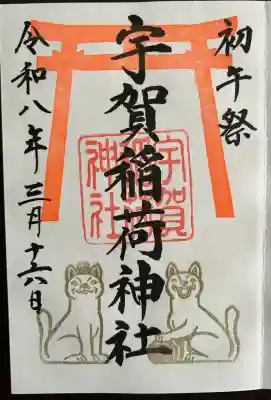 初午祭
宇賀稲荷神社
令和八年三月十六日
宇賀
神社